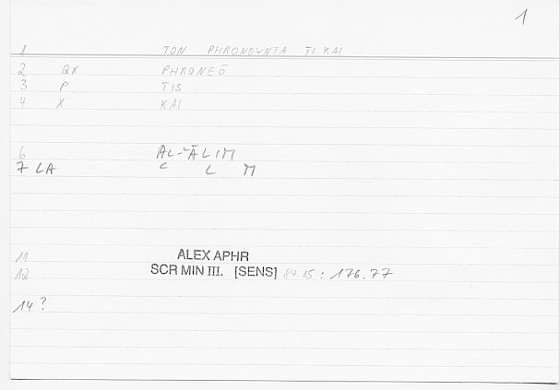 1
1 TON PHRONOUNTA TI KAI
2 QX PHRONEŌ
3 P TIS
4 X KAI
6 AL-ʿĀLIM
7 LA C L M
11 ALEX APHR
12 SCR MIN III. [SENS] 84.15 : 176.77
14 ?